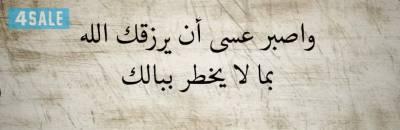 4SALE
واصبر عسى أن يرزقك الله
بما لا يخطر ببالك